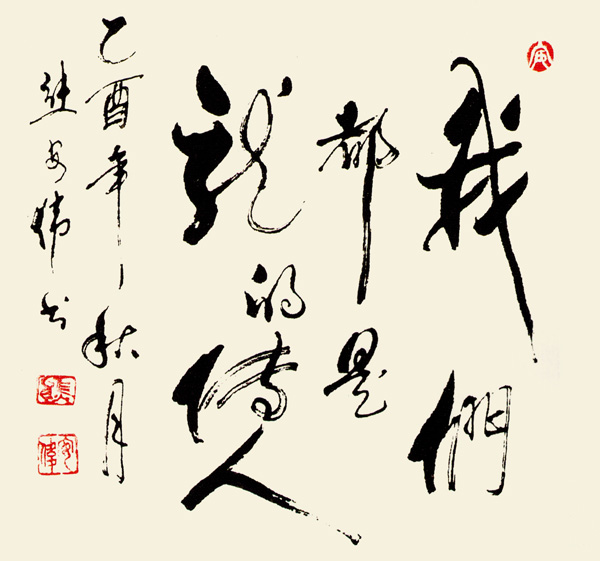 我們
都是
龍的傳人
乙酉年秋月
安偉书